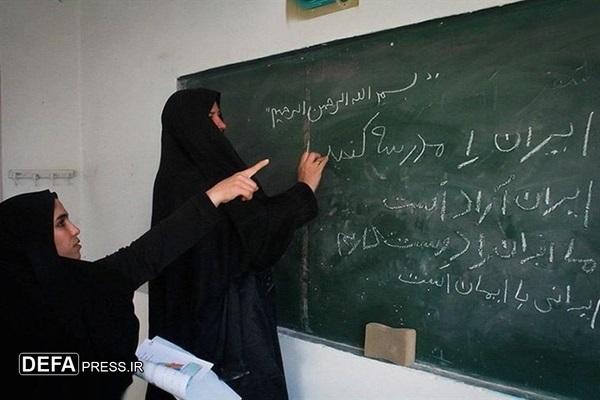 "بسم الله الرحمن الرحیم"
ایران را مدرسه کنید
ایران آزاد است
ما ایران را دوست داریم
ایرانی با ایمان است
DEFAPRESS.IR